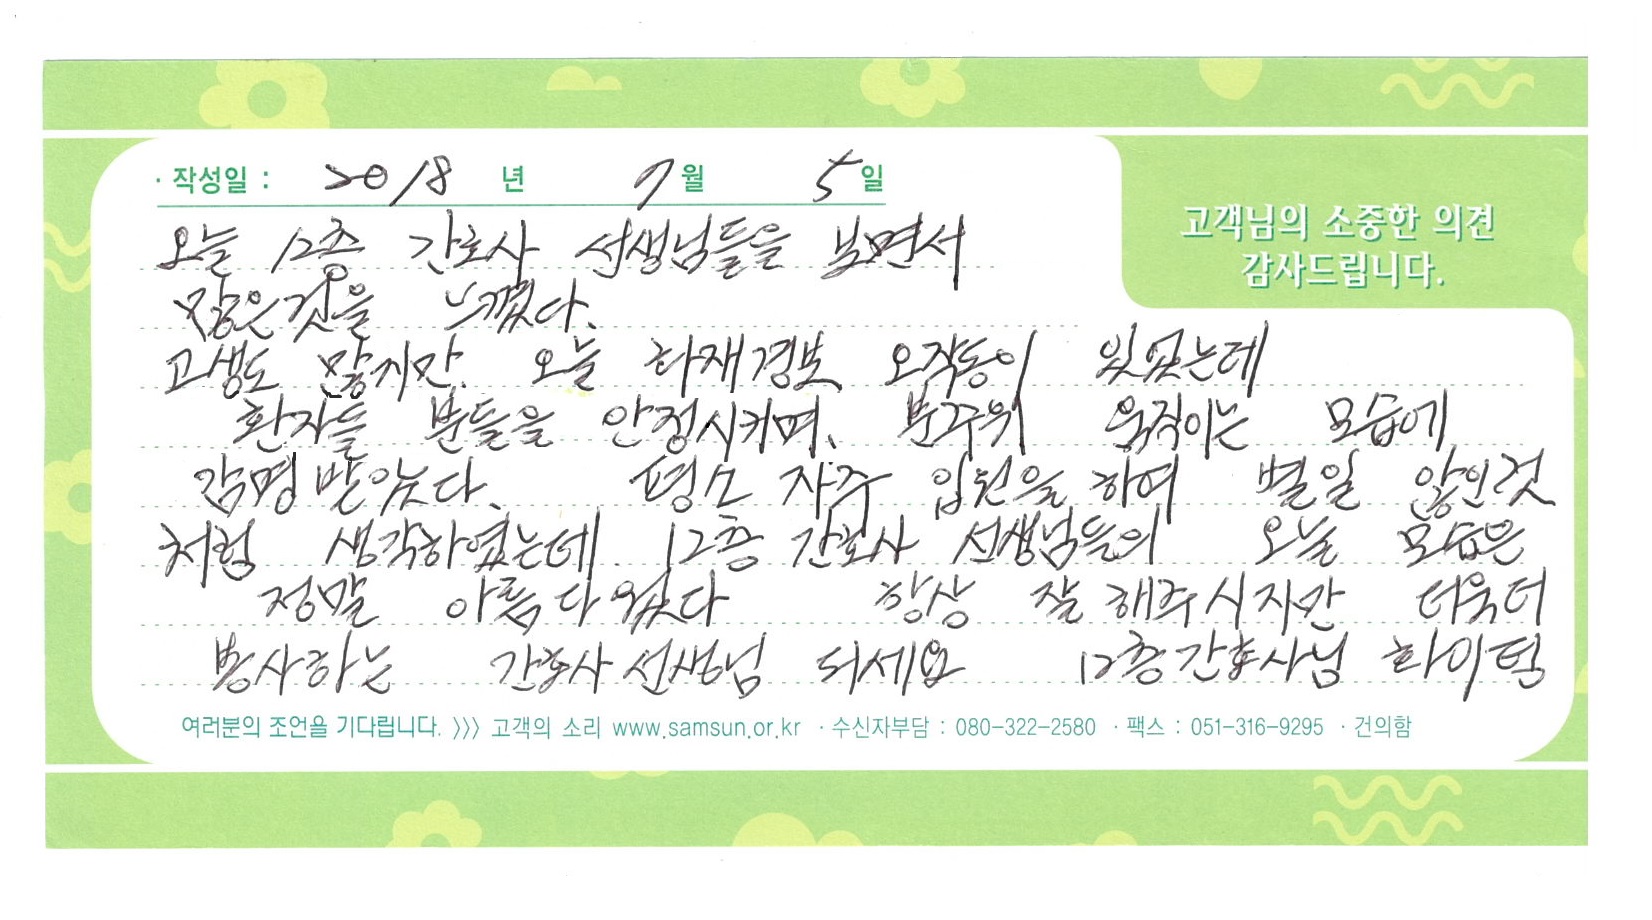 · 작성일 : 2018 년 7 월 5 일
고객님의 소중한 의견
감사드립니다.
오늘 12층 간호사 선생님들을 보면서
많은것을 느꼈다.
고생도 많지만. 오늘 화재경보 오작동이 있었는데
환자들 분들을 안정시키며. 분주위 움직이는 모습에
감명받았다. 평소 자주 입원을 하며 별일 않인것
처럼 생각하였는데. 12층 간호사 선생님들의 오늘 모습은
정말 아름다웠다 항상 잘해주시지만 더욱더
봉사하는 간호사선생님 되세요 12층간호사님 화이팅
여러분의 조언을 기다립니다. 〉〉〉 고객의 소리 www.samsun.or.kr · 수신자부담 : 080-322-2580 · 팩스 : 051-316-9295 · 건의함